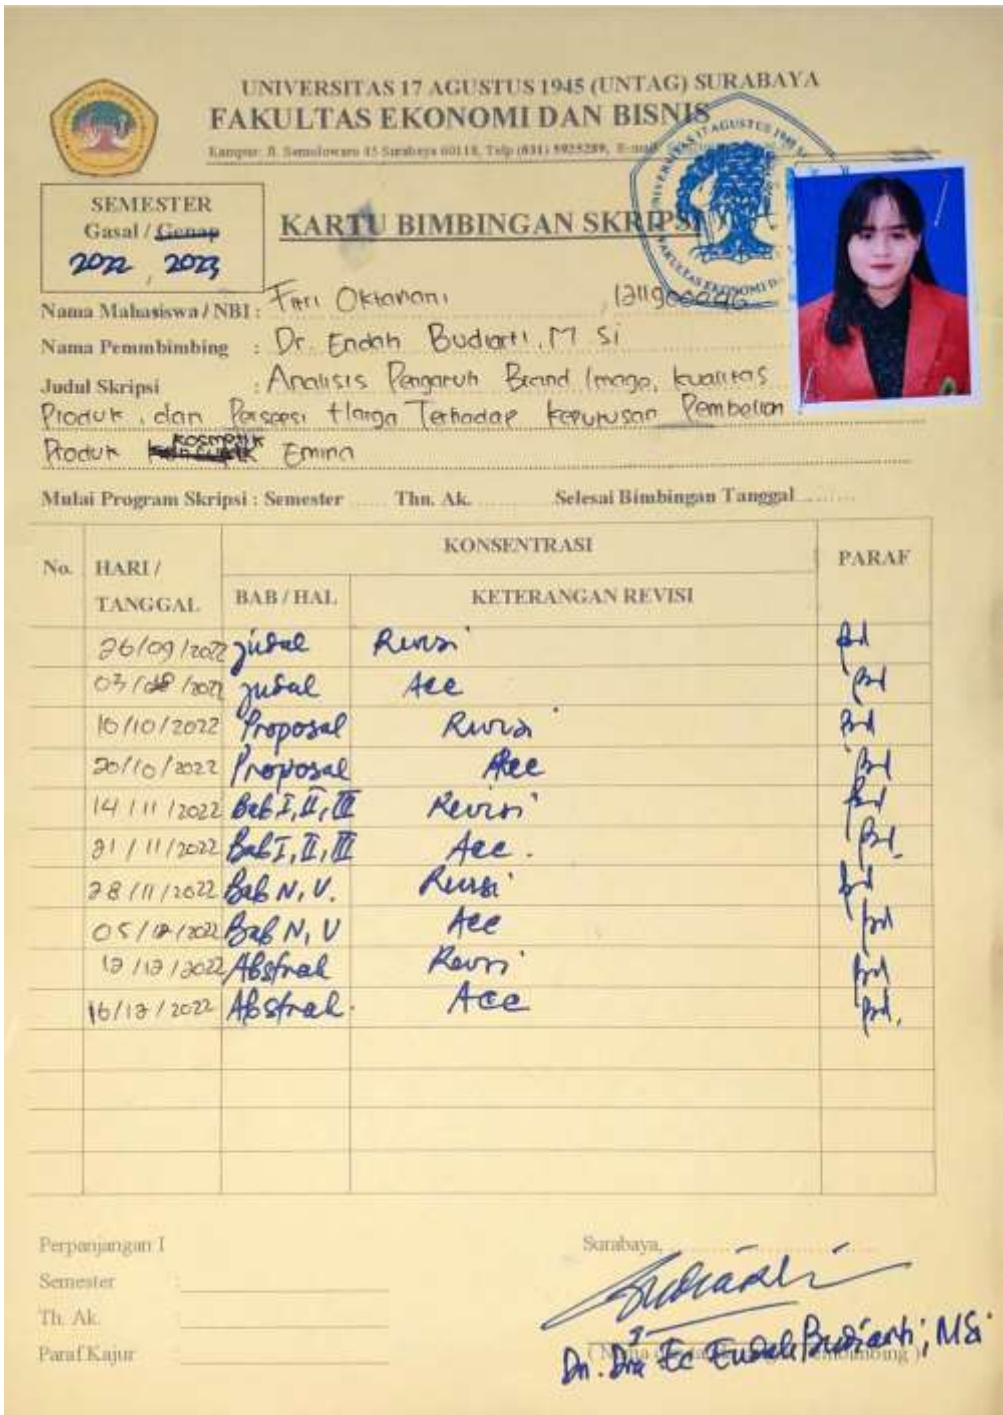 UNIVERSITAS 17 AGUSTUS 1945 (UNTAG) SURABAYA
FAKULTAS EKONOMI DAN BISNIS
Kampus: Jl. Semolowaru 45 Surabaya 60118, Telp (031) 5925289, E-mail
UNIVERSITAS 17 AGUSTUS 1945
FAKULTAS EKONOMI D
SEMESTER
Gasal / Genap
2022, 2023
KARTU BIMBINGAN SKRIPSI
Nama Mahasiswa / NBI : Fitri Oktaviani 1211900096
Nama Pemmbimbing : Dr. Endah Budiarti, M Si
Judul Skripsi : Analisis Pengaruh Brand Image, Kualitas
Produk, dan Persepsi Harga Terhadap Keputusan Pembelian
Produk kosmetik Emina
Mulai Program Skripsi : Semester ...... Thn. Ak. .......... Selesai Bimbingan Tanggal ........
No. HARI / TANGGAL KONSENTRASI PARAF
BAB / HAL KETERANGAN REVISI
26/09/2022 judul Revisi
03/ /2022 judul Acc
10/10/2022 Proposal Revisi
20/10/2022 Proposal Acc
14/11/2022 Bab I, II, III Revisi
21/11/2022 Bab I, II, III Acc.
28/11/2022 Bab IV, V. Revisi
05/12/2022 Bab IV, V Acc
12/12/2022 Abstrak Revisi
16/12/2022 Abstrak. Acc
Perpanjangan I
Surabaya,
Semester :
Th. Ak.
Paraf Kajur
Dr. Dra Ec Endah Budiarti, MSi